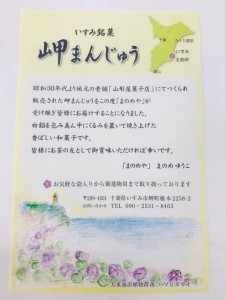 いすみ銘菓
岬まんじゅう
千葉
いすみ
太東崎
館山
昭和30年代より地元の老舗「山形屋菓子店」にてつくられ
販売された岬まんじゅうをこの度「まのめや」が
受け継ぎ皆様にお届けすることになりました。
白餡を包み真ん中にくるみを置いて焼き上げた
香ばしい和菓子です。
皆様にお茶の友として御賞味いただければ幸いです。
「まのめや」 まの めゆうこ
お気軽な袋入りから御進物用まで取り扱っております
〒299-4501 千葉県いすみ市岬町椎木2258-2
お問い合わせ TEL 090-2331-8463
太東海浜植物群落 ハマヒルガオ